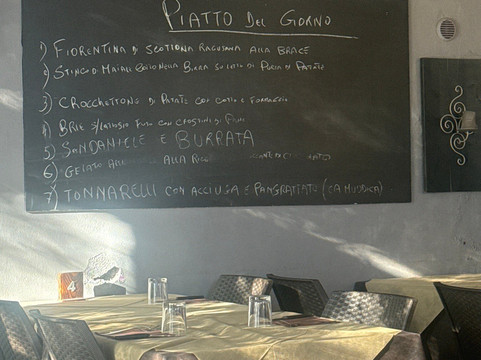 PIATTO DEL GIORNO
1) FIORENTINA DI SCOTTONA RAGUSANA ALLA BRACE
2) STINCO DI MAIALE NELLA BIRRA SU LETTO DI PUREA DI PATATE
3) CROCCHETTONE DI PATATE CON COTTO E FORMAGGIO
4) BRIE CON CROSTINI DI PANE
5) SAN DANIELE E BURRATA
6) GELATO ALLA
7) TONNARELLI CON ACCIUGA E PANGRATTATO (CA MUDDICA)
4